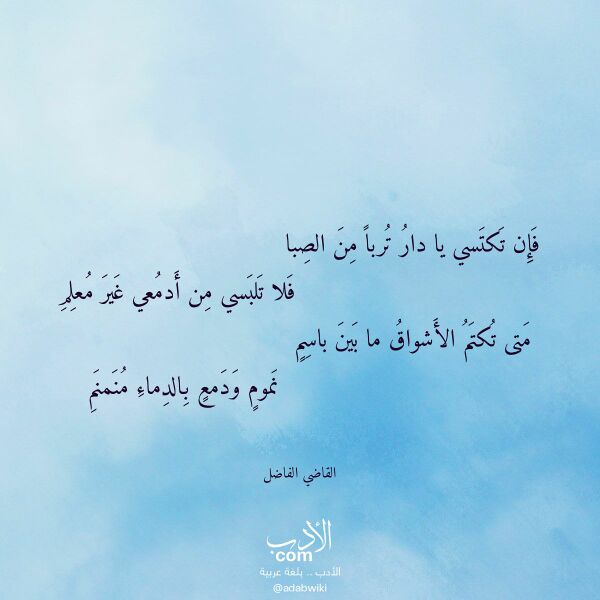 فَإِن تَكتَسي يا دارُ تُرباً مِنَ الصِبا
فَلا تَلبَسي مِن أَدمُعي غَيرَ مُعلِمِ
مَتى تُكتَمُ الأَشواقُ ما بَينَ باسِمٍ
نَمومٍ وَدَمعٍ بِالدِماءِ مُنَمنَمِ
القاضي الفاضل
الأدب
com
الأدب .. بلغة عربية
@adabwiki